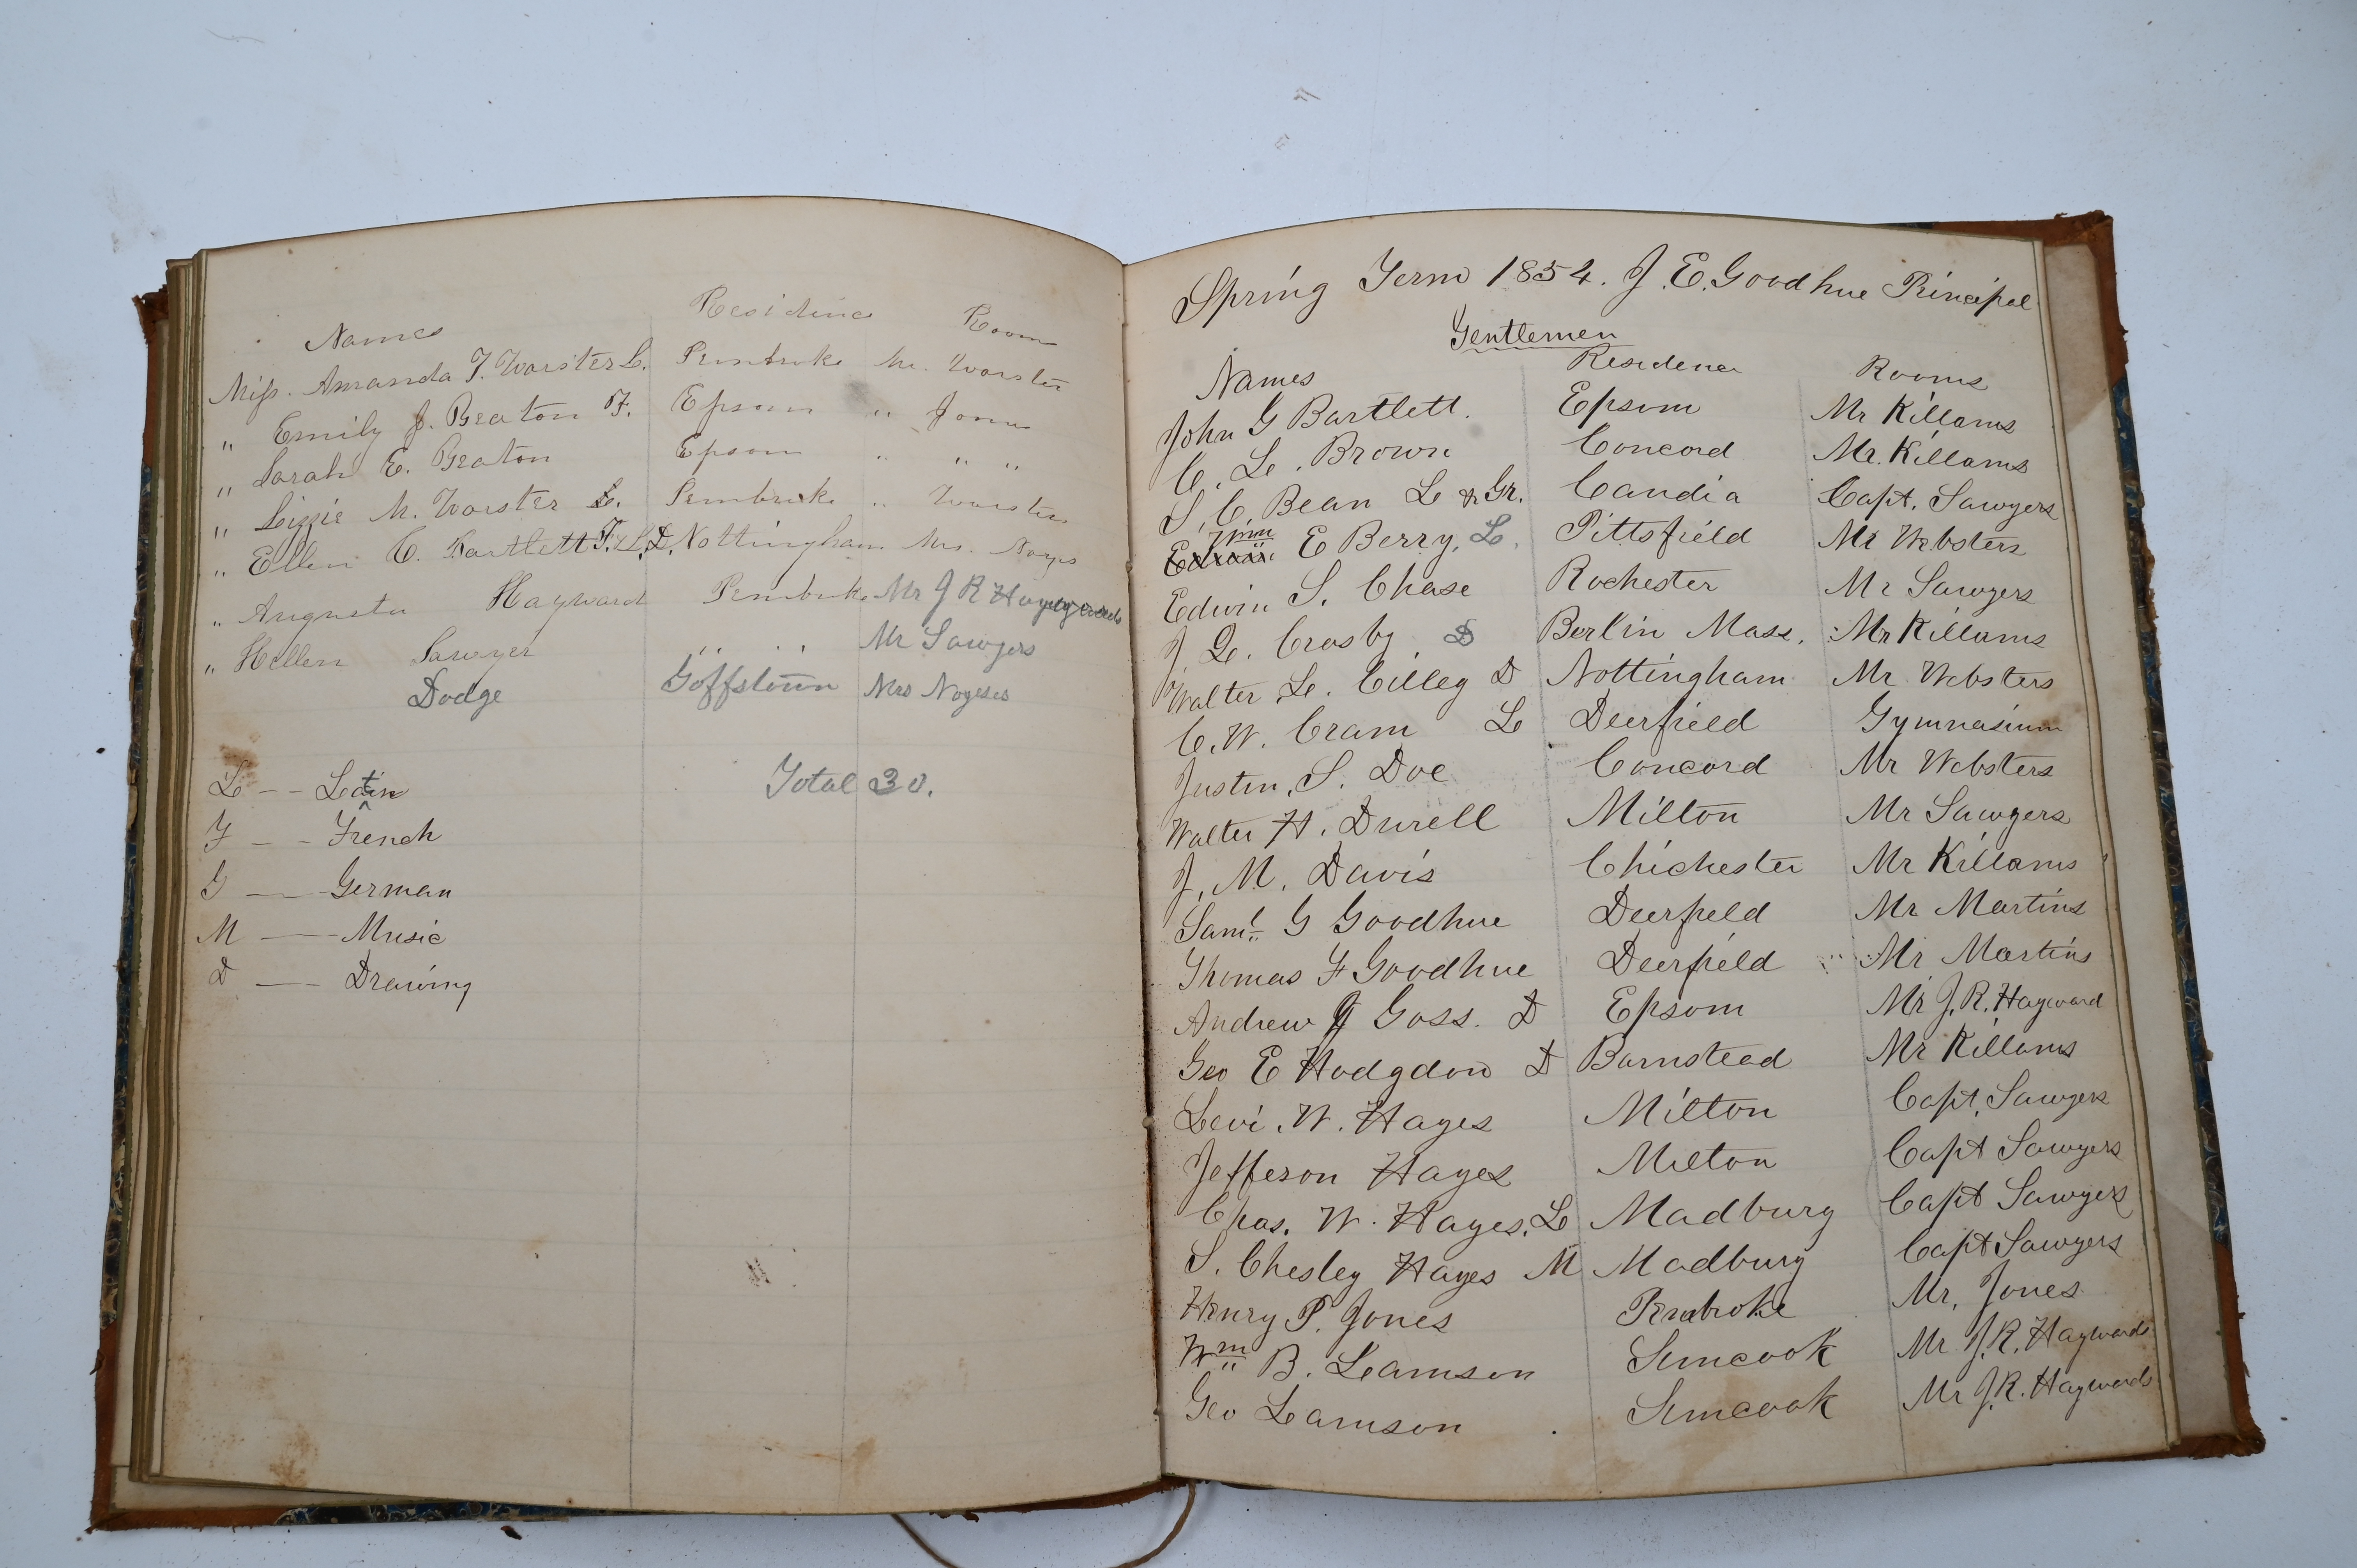 Names Residence Room
Miss. Amanda J. Worster L. Pembroke Mr. Worster
" Emily J. Beaton F. Epsom " Jones
" Sarah E. Beaton Epsom " " "
" Lizzie M. Worster L. Pembroke " Worsters
" Ellen C. Bartlett F. & L. D. Nottingham Mrs. Noyes
" Augusta Hayward Pembroke Mr J R Haywards
" Hellen Sawyer " " Mr Sawyers
Dodge Goffstown Mrs Noyeses
L -- Latin Total 30.
F -- French
G -- German
M -- Music
D -- Drawing
Spring Term 1854. J. E. Goodhue Principal
Gentlemen
Names Residence Rooms
John G Bartlett. Epsom Mr Killams
C. L. Brown Concord Mr. Killams
S. C. Bean L & Gr. Candia Capt. Sawyers
Wm E Berry. L. Pittsfield Mr Websters
Edwin S. Chase Rochester Mr Sawyers
J. L. Crosby D Berlin Mass. Mr Killams
Walter L. Cilley D Nottingham Mr Websters
C. W. Cram L Deerfield Gymnasium
Justin. S. Doe Concord Mr Websters
Walter H. Durell Milton Mr Sawyers
J. M. Davis Chichester Mr Killams
Saml. G Goodhue Deerfield Mr Martins
Thomas F Goodhue Deerfield Mr Martins
Andrew J Goss. D Epsom Mr J. R. Hayward
Geo E Hodgdon D Barnstead Mr Killams
Levi. W. Hayes Milton Capt. Sawyers
Jefferson Hayes Milton Capt Sawyers
Chas. W. Hayes. L Madbury Capt Sawyers
S. Chesley Hayes M Madbury Capt Sawyers
Henry P. Jones Pembroke Mr. Jones
Wm B. Lamson Suncook Mr J. R. Haywards
Geo Lamson Suncook Mr J. R. Haywards